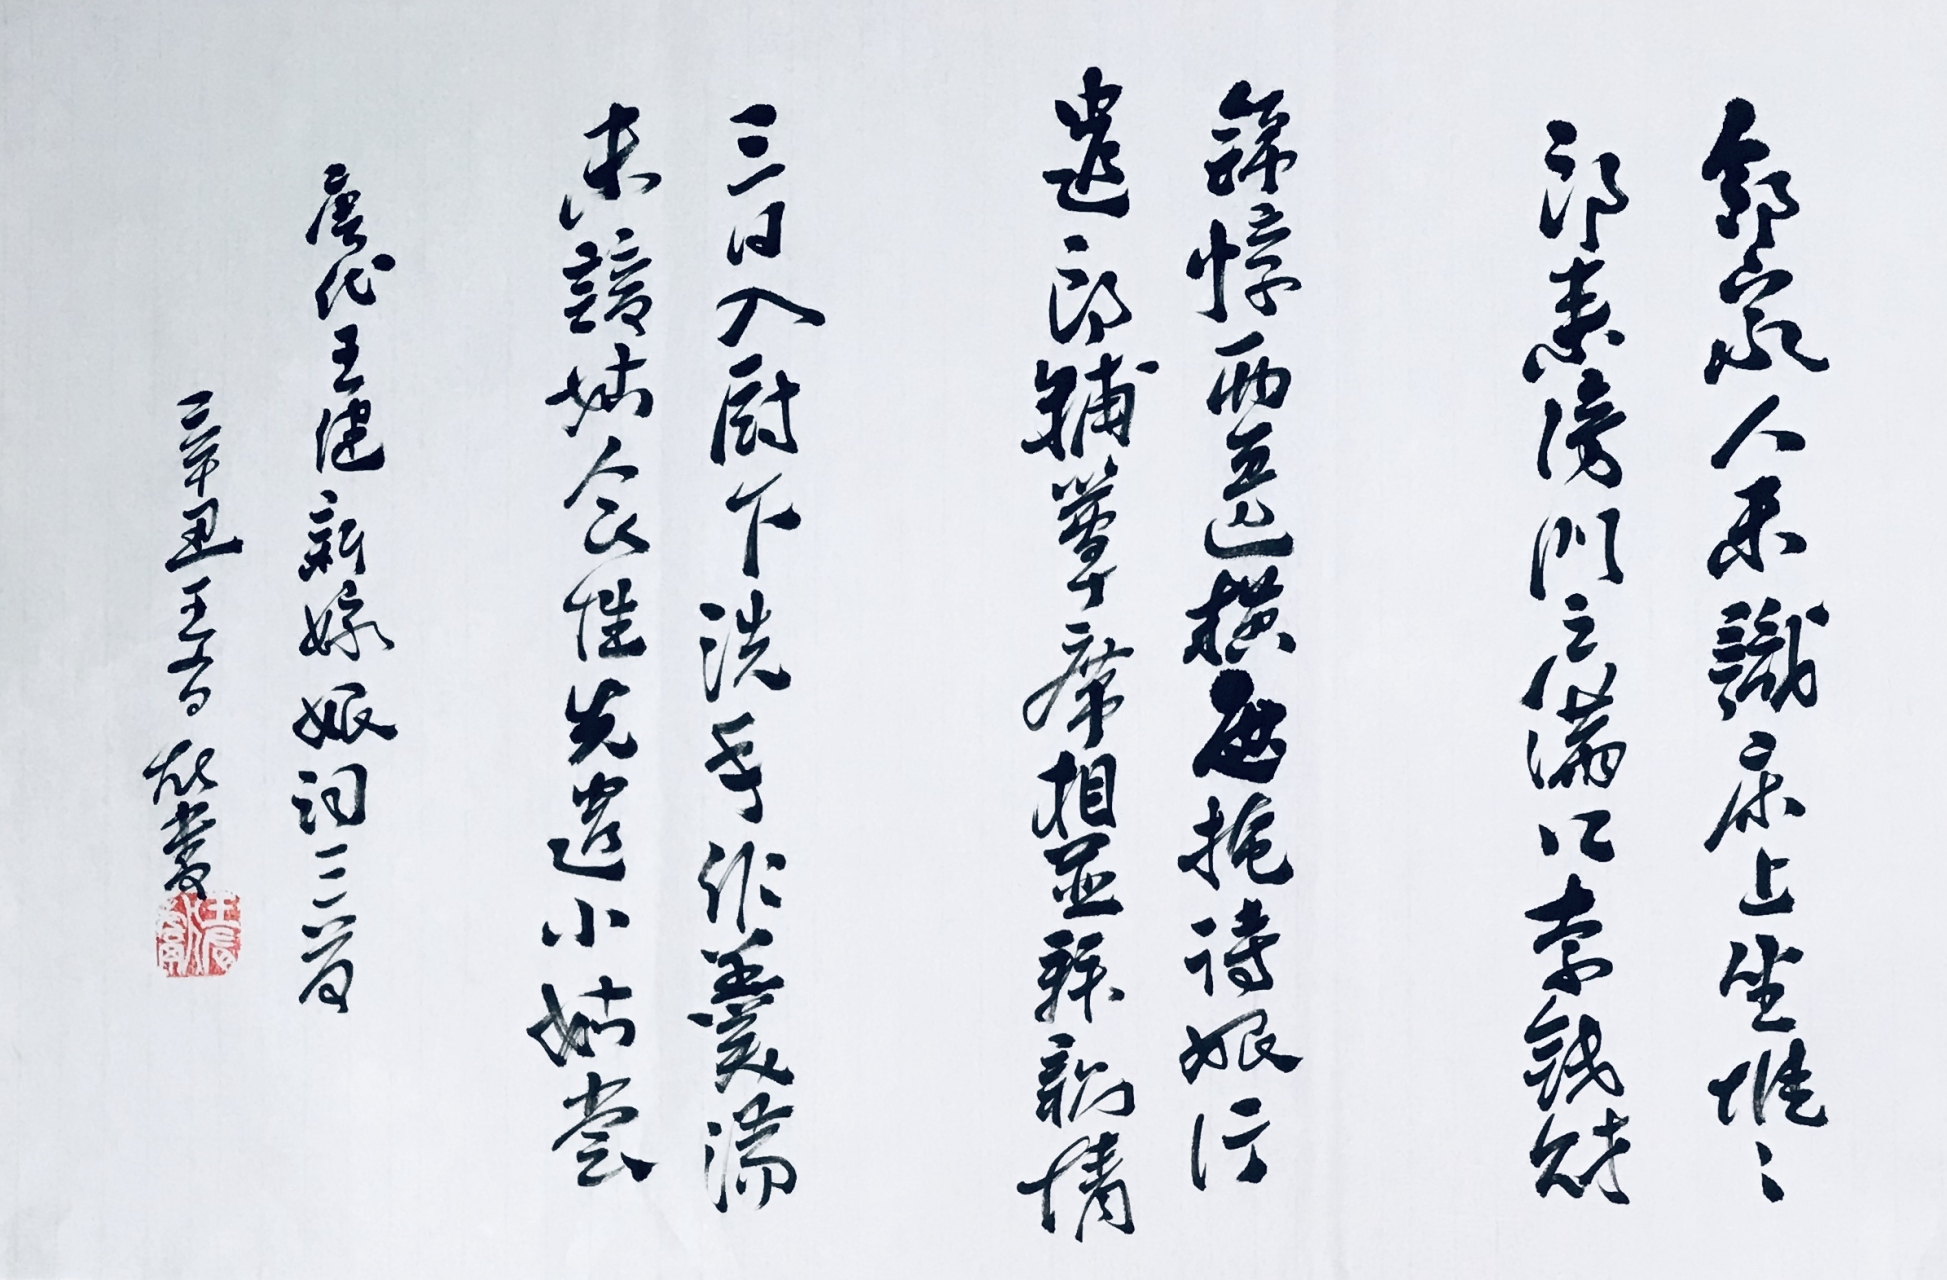 鄰家人未識床上坐堆々
郎来傍门户滿口索錢財
錦幛兩邊橫遮掩詩娘行
遣郎鋪簟席相並拜親情
三日入厨下洗手作羹湯
未諳姑食性先遣小姑尝
唐代王健新嫁娘词三首
辛丑王書